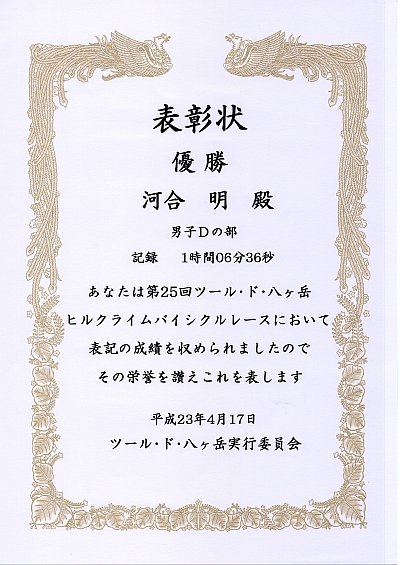 表彰状
優勝
河合　明　殿
男子Dの部
記録　1時間06分36秒
あなたは第25回ツール・ド・八ヶ岳
ヒルクライムバイシクルレースにおいて
表記の成績を収められましたので
その栄誉を讃えこれを表します
平成23年4月17日
ツール・ド・八ヶ岳実行委員会